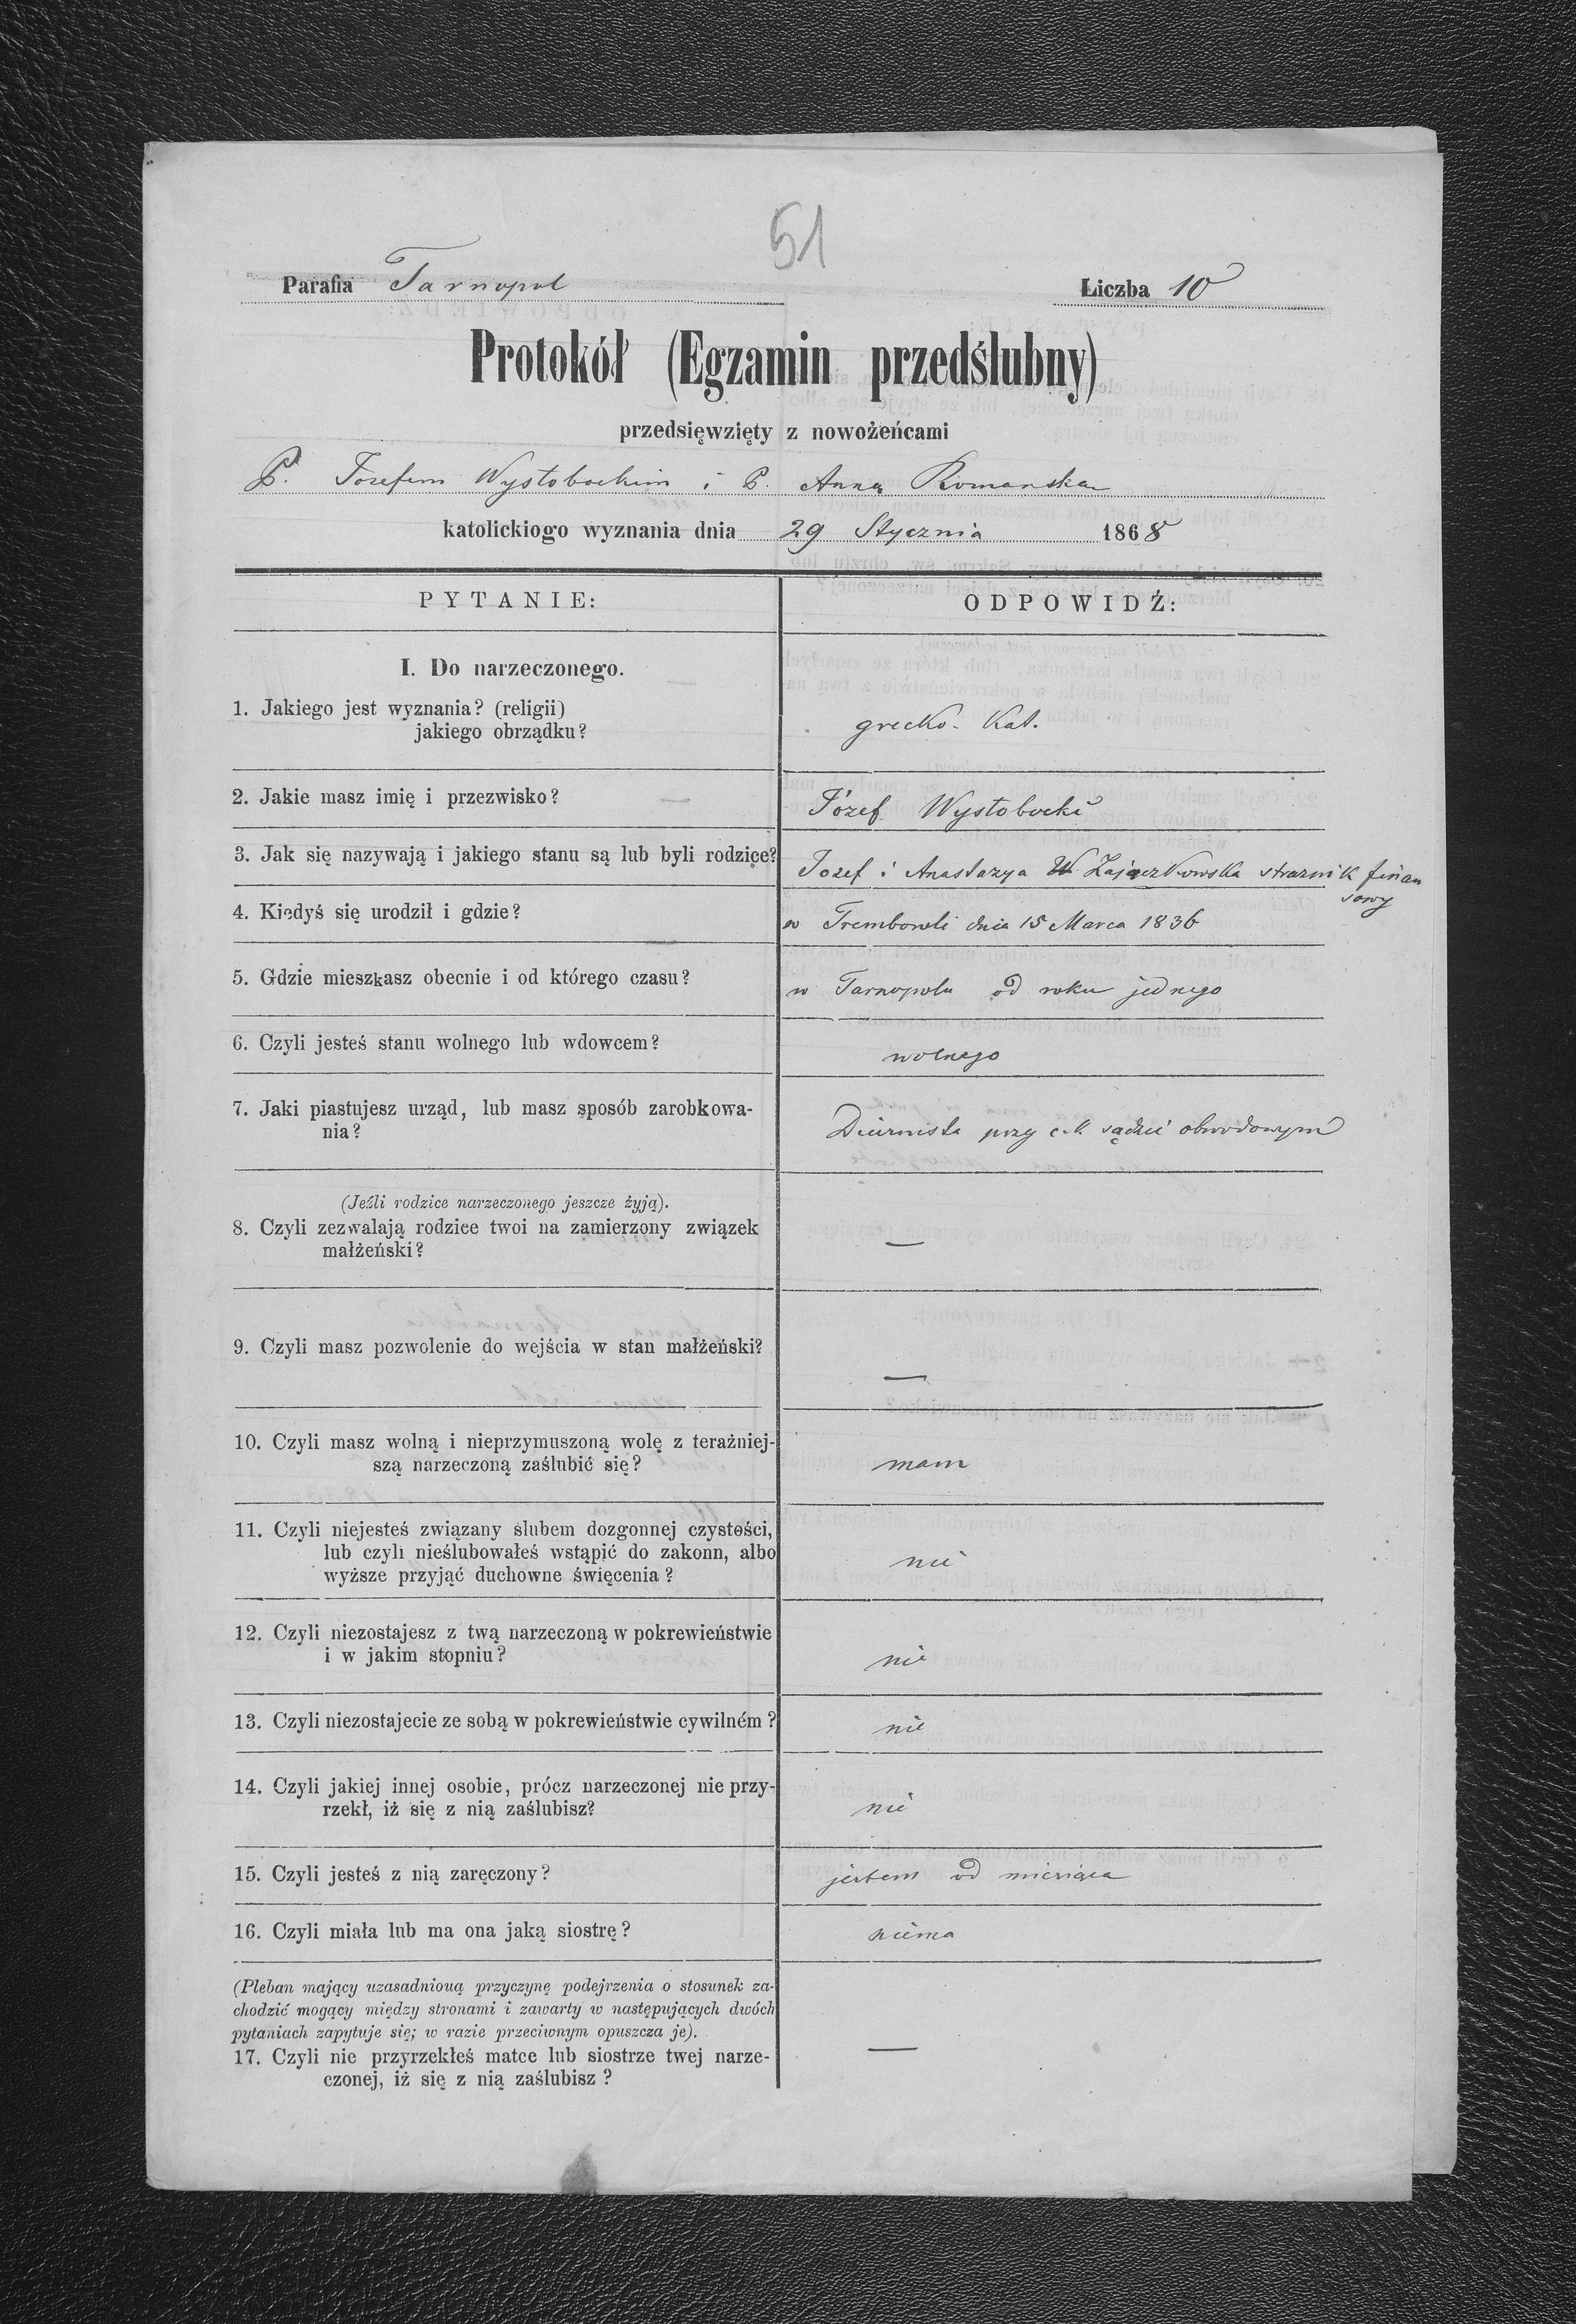 51
Parafia Tarnopol
Liczba 10
Protokół (Egzamin przedślubny)
przedsięwzięty z nowożeńcami
P. Józefem Wysłobockim i P. Anną Romanską
katolickiogo wyznania dnia 29 Stycznia 1868
PYTANIE:
ODPOWIDŹ:
I. Do narzeczonego.
1. Jakiego jest wyznania? (religii)
jakiego obrządku?
grecko. Kat.
2. Jakie masz imię i przezwisko?
Józef Wysłobocki
3. Jak się nazywają i jakiego stanu są lub byli rodzice?
Józef i Anastazya Zajączkowska straznik finan
sowy
4. Kiedyś się urodził i gdzie?
w Trembowli dnia 15 Marca 1836
5. Gdzie mieszkasz obecnie i od którego czasu?
w Tarnopolu od roku jednego
6. Czyli jesteś stanu wolnego lub wdowcem?
wolnego
7. Jaki piastujesz urząd, lub masz sposób zarobkowa-
nia?
Diurnista przy c.k. sądzie obwodowym
(Jeźli rodzice narzeczonego jeszcze żyją).
8. Czyli zezwalają rodzice twoi na zamierzony związek
małżeński?
—
9. Czyli masz pozwolenie do wejścia w stan małżeński?
—
10. Czyli masz wolną i nieprzymuszoną wolę z teraźniej-
szą narzeczoną zaślubić się?
mam
11. Czyli niejesteś związany ślubem dozgonnej czystości,
lub czyli nieślubowałeś wstąpić do zakonn, albo
wyższe przyjąć duchowne święcenia?
nie
12. Czyli niezostajesz z twą narzeczoną w pokrewieństwie
i w jakim stopniu?
nie
13. Czyli niezostajecie ze sobą w pokrewieństwie cywilném?
nie
14. Czyli jakiej innej osobie, prócz narzeczonej nie przy-
rzekł, iż się z nią zaślubisz?
nie
15. Czyli jesteś z nią zaręczony?
jestem od miesiąca
16. Czyli miała lub ma ona jaką siostrę?
niema
(Pleban mający uzasadnioną przyczynę podejrzenia o stosunek za-
chodzić mogący między stronami i zawarty w następujących dwóch
pytaniach zapytuje się; w razie przeciwnym opuszcza je).
17. Czyli nie przyrzekłeś matce lub siostrze twej narze-
czonej, iż się z nią zaślubisz?
—